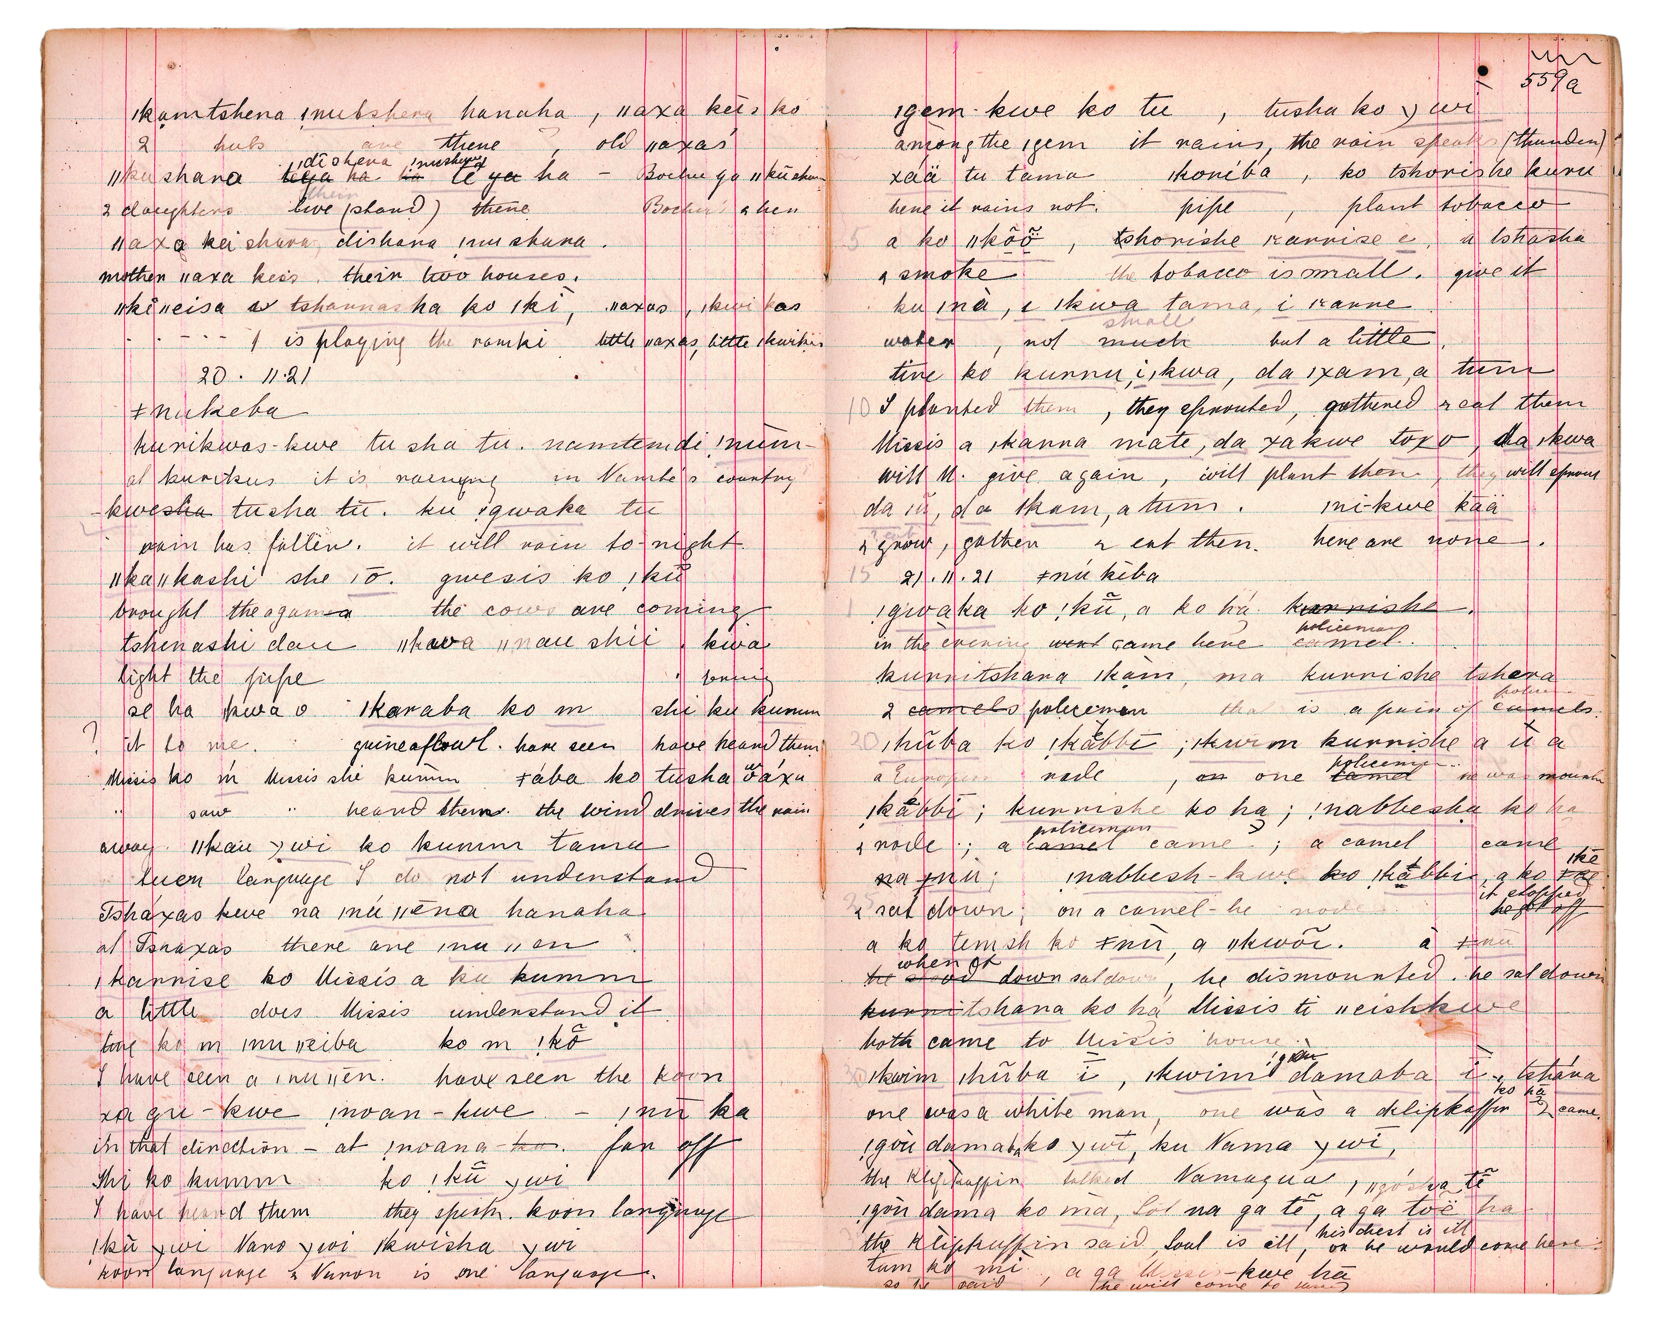 ıkamtshena ınubshera hanaha, ıı axa keis ko
2 huts are there, old ııaxas'
dishena ınushera
ııkushara teya ha tē ya ha – Bochu ga ııkū
their
2 daughters live (stand) there Bochu's
ııaxa kei shara, dishara ınushara.
mother ııaxa keis. their two houses.
ııkēııeisa tshannas ha ko ıkī, ııaxas, ıkwi kas
I is playing the ramki little ııaxas, little ıkwikis
20. 11. 21
ǂnukeba
kurikwas-kwe tu sha tu. namtemdi ǃnūm-
at kurikus it is raining in Namte's country
-kwesha tusha tū. ku ıgwaka tu
rain has fallen. it will rain to-night
ııkaııkashi she ıō. gwesis ko ǃkū̃
brought the agama the cows are coming
tshenashi dau ııkava ıınau shii. kwa
light the pipe bring
se ha ıkwa o ıkaraba ko m shi ku kumm
? it to me. guineafowl. have seen have heard them
Missis ko ḿ Missis she kumm ǂába ko tusha ūáxu
" saw " heard them. the wind drives the rain
away. ııkau ywi ko kumm tama
Auen language I do not understand
Tsháxas kwe na ınúııēna hanaha
at Tsháxas there are ınu ıı en
ıkannise ko Missis a ku kumm
a little does Missis understand it
tıne ko m ınu ııeiba ko m ǃkō̃
I have seen a ınuıı ēn. have seen the koon
xa gu-kwe ǃnoan-kwe – ǃnū ka
in that direction – at ǃnoana- far off
Shi ko kumm ko ǃkū̃ ywi
I have heard them they speak. koon language
ǃkū ywi Naro ywi ıkwisha ywi
koon language & Naron is one language.
559a
ıgem-kwe ko tu, tusha ko ywi
among the ıgem it rains, the rain speaks (thunders)
xáä tu tama ıkoniba, ko tshorishe kuru
here it rains not. pipe, plant tobacco
5 a ko ııkõõ, tshorishe ıkannise e, a tshasha
& smoke the tobacco is small. give it
ku ınà, i ıkwa tama, i ıkanne
small
water, not much but a little.
tıne ko kurnu, i ıkwa, da ıxam, a tum
10 I planted them, they sprouted, gathered & eat them
Missis a ıkanna mate, da xakwe toxo, da ıkwa
will M. give again, will plant them, they will sprout
da ıū, da ıkam, a tum. ıni-kwe kää
& grow, gather & eat them. here are none.
15 21. 11. 21 ǂnúkiba
1 ǃgwaka ko ǃkū̃, a ko há kurrishe.
policeman
in the evening went came here camel.
kurritshara ıkàm, ma kurrishe tshara
2 camels policemen that is a pair of camels.
20 ıhūba ko ıkābbi; ıkwim kurrishe a ı̀ a
policeman
a European rode, on one camel he was mounted
ıkābbi; kurrishe ko ha; ǃnabbesha ko ha
policeman
& rode; a camel came; a camel came
na ǂnù; ǃnabbesh-kwe ko ıkābbi, a ko ıkē
25 & sat down; on a camel-he rode it stopped
he got off
a ko temsh ko ǂnū, a ııkwõı. à ǂnū
when it
he stood down sat down, he dismounted. he sat down
kurritshara ko há Missis ti ııeishkwe
both came to Missis house.
ǃgõu
30 ıkwim ıhūba ī, ıkwim damaba ī, tshára
ko há
one was a white man, one was a klipkaffir & came.
ǃgòu damaba ko ywi, ku Nama ywi,
the Klipkaffir talked Namaqua,
ǃgòu dama ko mà, Sol na ga tē̃, a ga toë ha
his chest is ill
the Klipkaffir said, Saul is ill, or he would come here.
tum ko mi, a ga Missis-kwe hā
so he said he will come to Missis